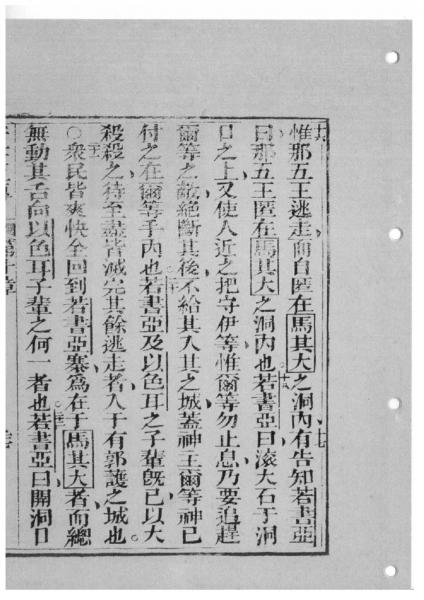 惟那五王逃走而自匿在馬其大之洞內有告知若書亞
曰那五王匿在馬其大之洞內也若書亞曰滚大石于洞
口之上又使人近之把守伊等惟爾等勿止息乃要追趕
爾等之敵絕斷其後不給其入其之城蓋神主爾等神已
付之在爾等手內也若書亞及以色耳之子輩既已以大
殺殺之待至盡皆滅完其餘逃走者入于有郭護之城也
○衆民皆爽快全回到若書亞寨爲在于馬其大者而總
無動其舌向以色耳子輩之何一者也若書亞曰開洞口